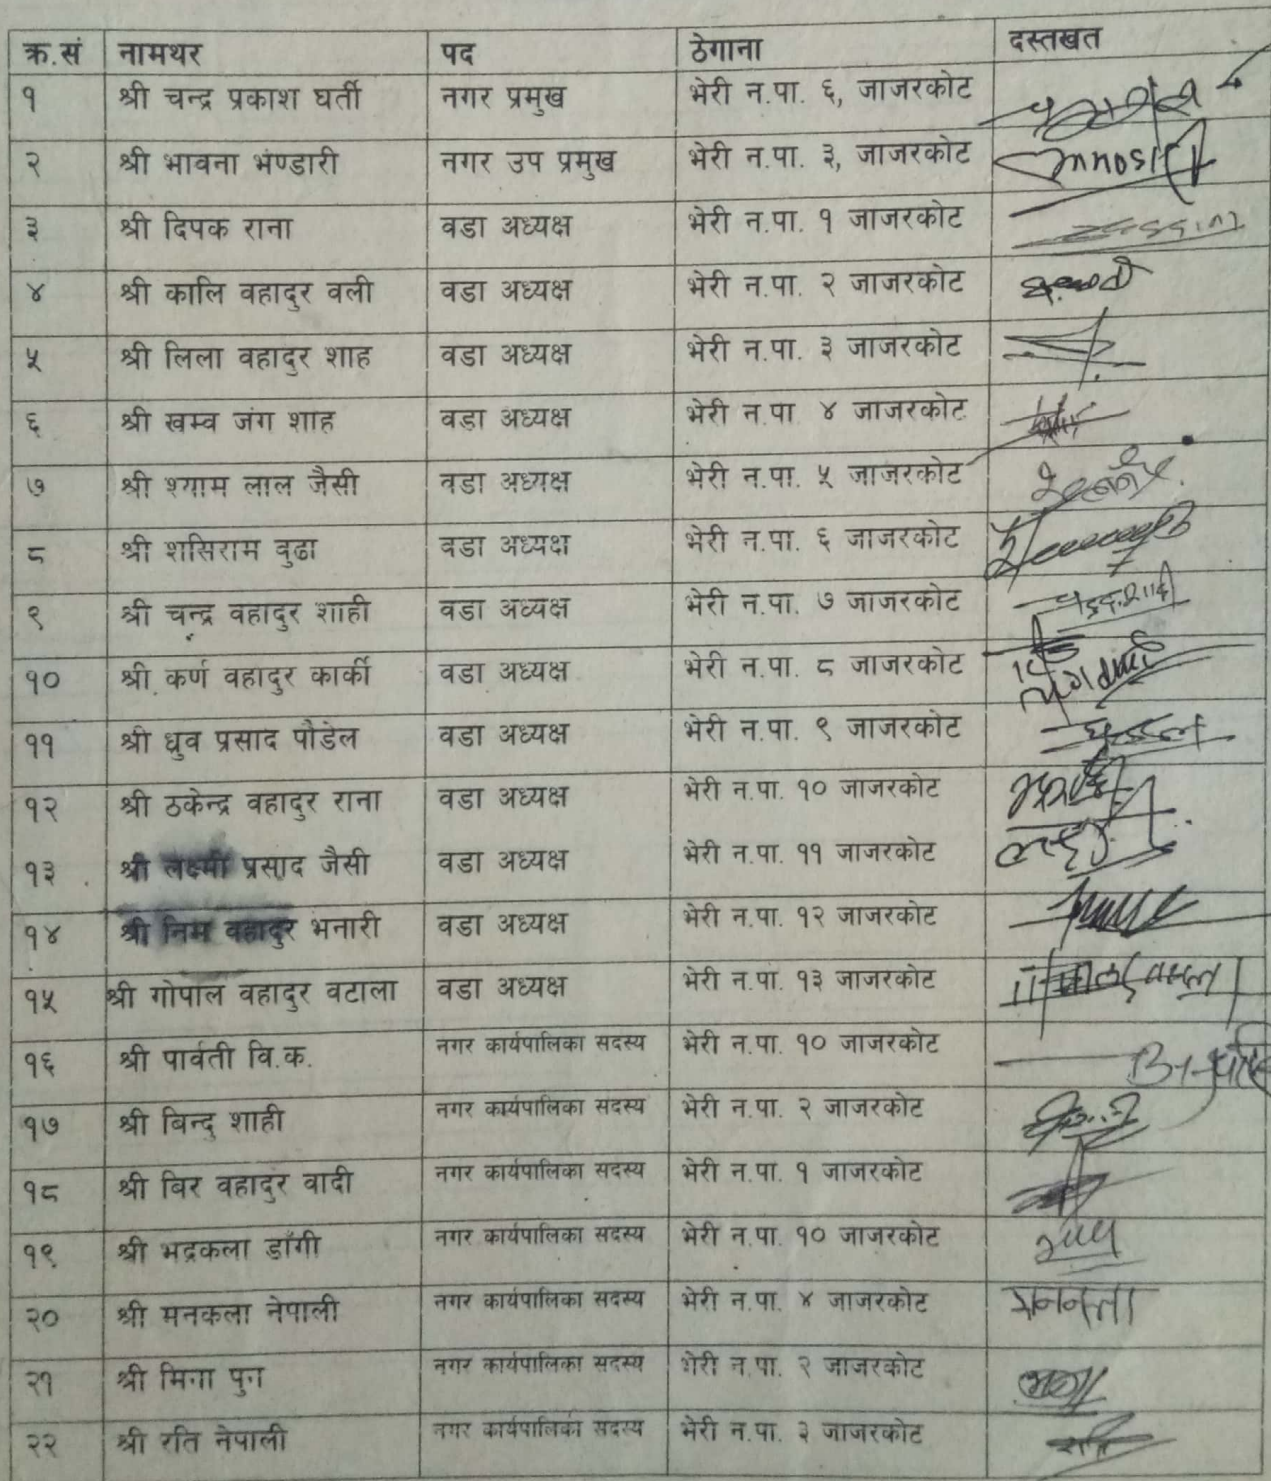 क्र.सं नामथर पद ठेगाना दस्तखत
१ श्री चन्द्र प्रकाश घर्ती नगर प्रमुख भेरी न.पा. ६, जाजरकोट
२ श्री भावना भण्डारी नगर उप प्रमुख भेरी न.पा. ३, जाजरकोट
३ श्री दिपक राना वडा अध्यक्ष भेरी न.पा. १ जाजरकोट
४ श्री कालि वहादुर वली वडा अध्यक्ष भेरी न.पा. २ जाजरकोट
५ श्री लिला वहादुर शाह वडा अध्यक्ष भेरी न.पा. ३ जाजरकोट
६ श्री खम्व जंग शाह वडा अध्यक्ष भेरी न.पा. ४ जाजरकोट
७ श्री श्याम लाल जैसी वडा अध्यक्ष भेरी न.पा. ५ जाजरकोट
८ श्री शसिराम वुढा वडा अध्यक्ष भेरी न.पा. ६ जाजरकोट
९ श्री चन्द्र वहादुर शाही वडा अध्यक्ष भेरी न.पा. ७ जाजरकोट
१० श्री कर्ण वहादुर कार्की वडा अध्यक्ष भेरी न.पा. ८ जाजरकोट
११ श्री ध्रुव प्रसाद पौडेल वडा अध्यक्ष भेरी न.पा. ९ जाजरकोट
१२ श्री ठकेन्द्र वहादुर राना वडा अध्यक्ष भेरी न.पा. १० जाजरकोट
१३ श्री लक्ष्मी प्रसाद जैसी वडा अध्यक्ष भेरी न.पा. ११ जाजरकोट
१४ श्री निम वहादुर भनारी वडा अध्यक्ष भेरी न.पा. १२ जाजरकोट
१५ श्री गोपाल वहादुर वटाला वडा अध्यक्ष भेरी न.पा. १३ जाजरकोट
१६ श्री पार्वती वि.क. नगर कार्यपालिका सदस्य भेरी न.पा. १० जाजरकोट
१७ श्री बिन्दु शाही नगर कार्यपालिका सदस्य भेरी न.पा. २ जाजरकोट
१८ श्री बिर वहादुर वादी नगर कार्यपालिका सदस्य भेरी न.पा. १ जाजरकोट
१९ श्री भद्रकला डाँगी नगर कार्यपालिका सदस्य भेरी न.पा. १० जाजरकोट
२० श्री मनकला नेपाली नगर कार्यपालिका सदस्य भेरी न.पा. ४ जाजरकोट
२१ श्री मिना पुन नगर कार्यपालिका सदस्य भेरी न.पा. २ जाजरकोट
२२ श्री रति नेपाली नगर कार्यपालिका सदस्य भेरी न.पा. ३ जाजरकोट